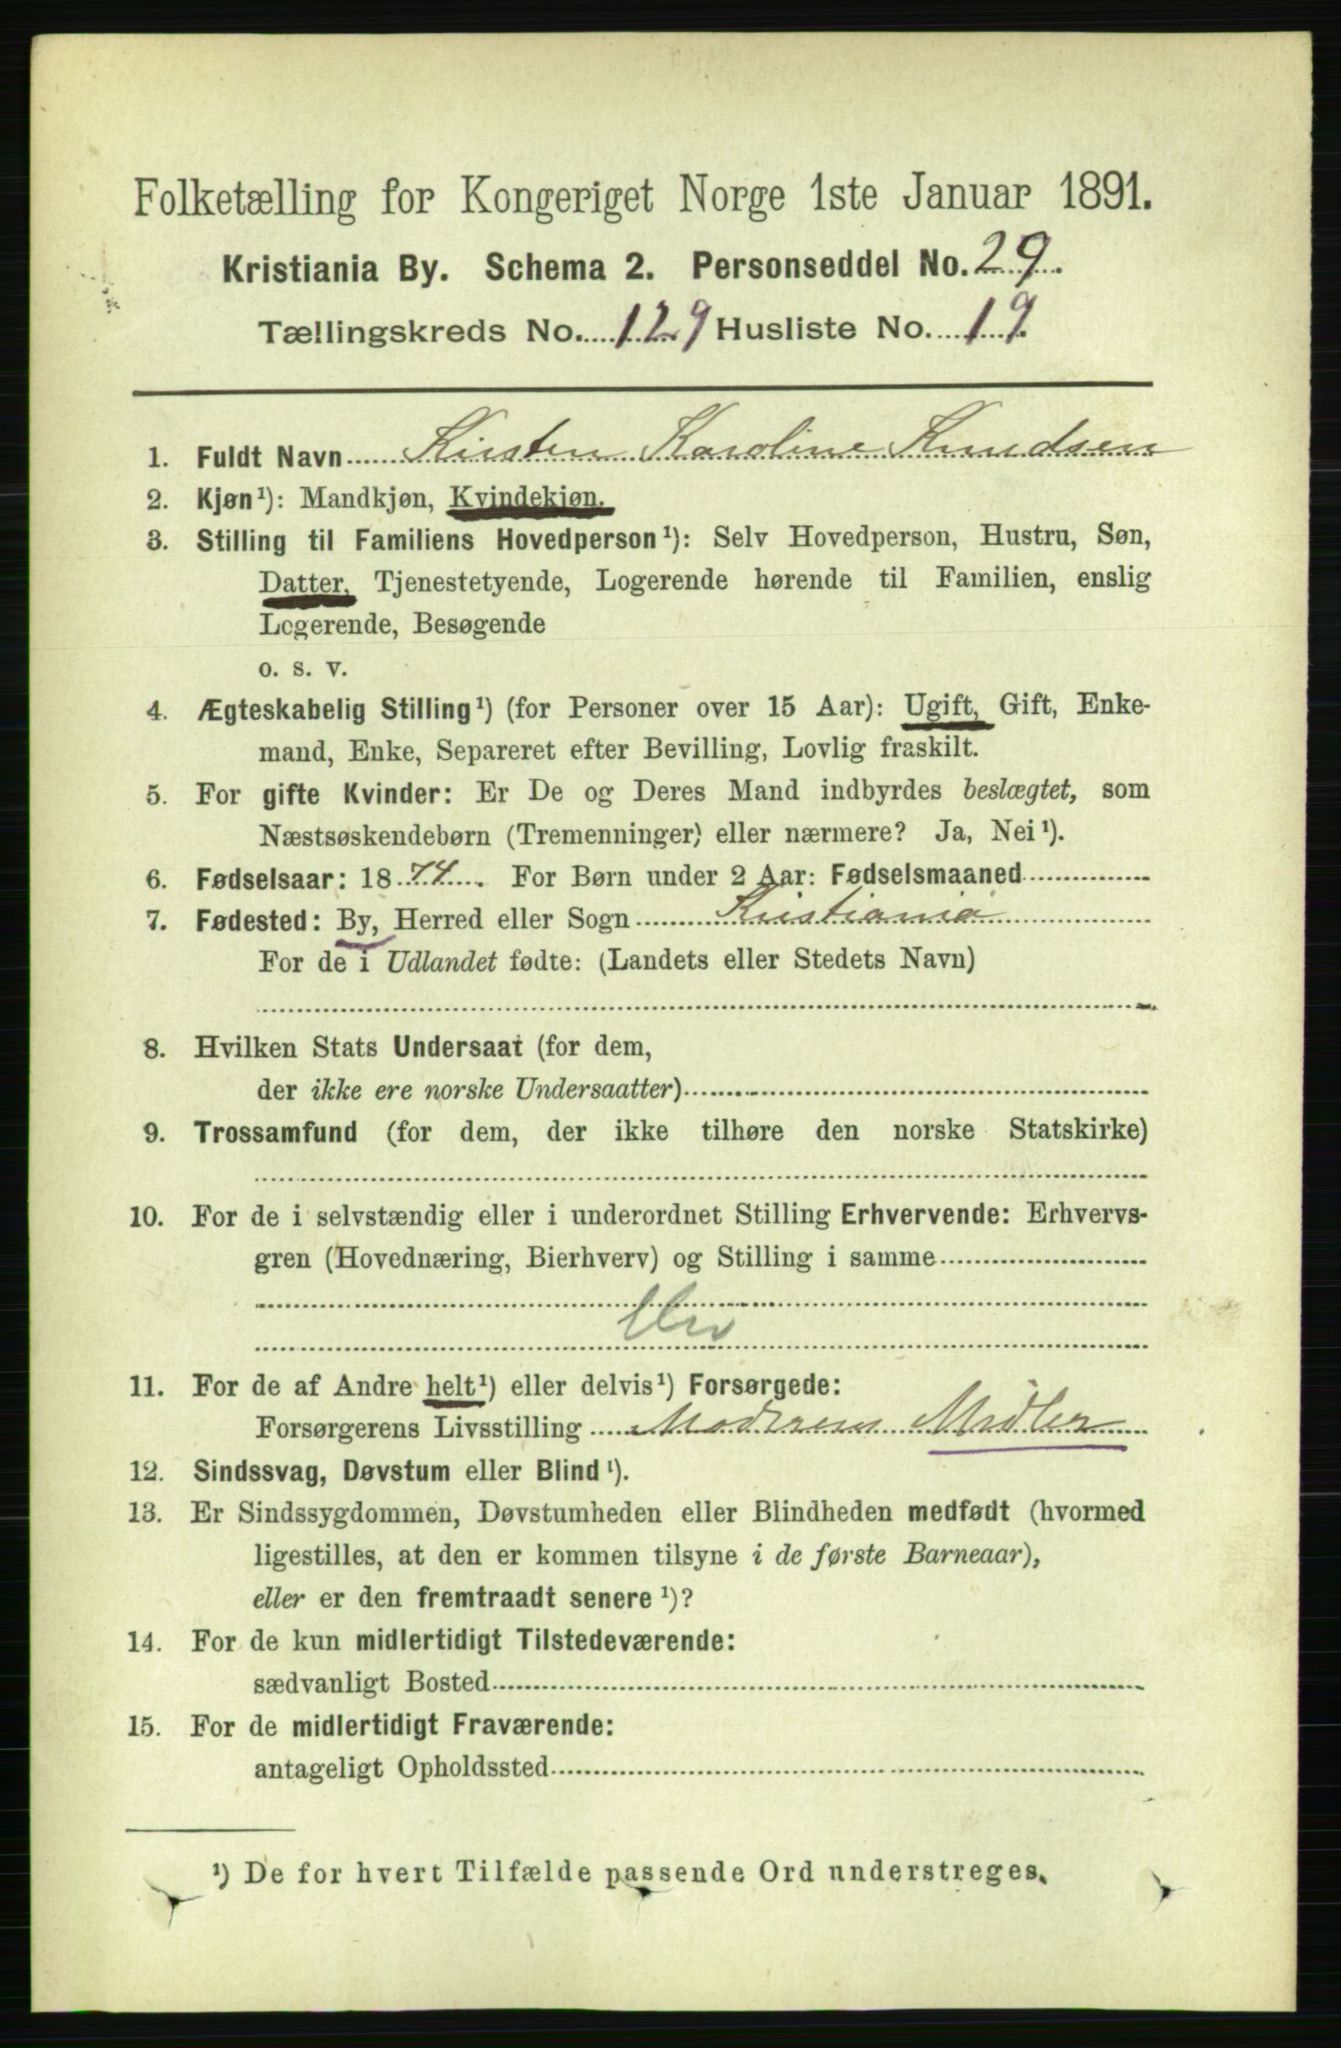 Folketælling for Kongeriget Norge 1ste Januar 1891.
Kristiania By. Schema 2. Personseddel No. 29.
Tællingskreds No. 129 Husliste No. 19.
1. Fuldt Navn Kirsten Karoline Knudsen
2. Kjøn¹): Mandkjøn, Kvindekjøn.
3. Stilling til Familiens Hovedperson¹): Selv Hovedperson, Hustru, Søn,
Datter, Tjenestetyende, Logerende hørende til Familien, enslig
Logerende, Besøgende
o. s. v.
4. Ægteskabelig Stilling¹) (for Personer over 15 Aar): Ugift, Gift, Enke-
mand, Enke, Separeret efter Bevilling, Lovlig fraskilt.
5. For gifte Kvinder: Er De og Deres Mand indbyrdes beslægtet, som
Næstsøskendebørn (Tremenninger) eller nærmere? Ja, Nei¹).
6. Fødselsaar: 1874. For Børn under 2 Aar: Fødselsmaaned
7. Fødested: By, Herred eller Sogn Kristiania
For de i Udlandet fødte: (Landets eller Stedets Navn)
8. Hvilken Stats Undersaat (for dem,
der ikke ere norske Undersaatter)
9. Trossamfund (for dem, der ikke tilhøre den norske Statskirke)
10. For de i selvstændig eller i underordnet Stilling Erhvervende: Erhvervs-
gren (Hovednæring, Bierhverv) og Stilling i samme
11. For de af Andre helt¹) eller delvis¹) Forsørgede:
Forsørgerens Livsstilling Moderens Midler
12. Sindssvag, Døvstum eller Blind¹).
13. Er Sindssygdommen, Døvstumheden eller Blindheden medfødt (hvormed
ligestilles, at den er kommen tilsyne i de første Barneaar),
eller er den fremtraadt senere¹)?
14. For de kun midlertidigt Tilstedeværende:
sædvanligt Bosted
15. For de midlertidigt Fraværende:
antageligt Opholdssted
¹) De for hvert Tilfælde passende Ord understreges.